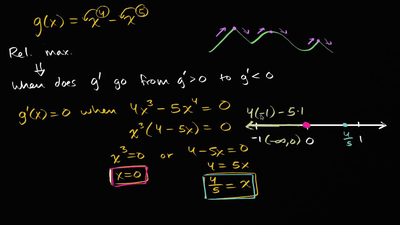 g(x) = x⁴ - x⁵
Rel. max.
⇓
when does g' go from g'>0 to g'<0
g'(x)=0 when 4x³-5x⁴=0
x³(4-5x)=0
x³=0 or 4-5x=0
4=5x
x=0
4/5 = x
4(-1)-5·1
-1 (-∞,0) 0 4/5 1